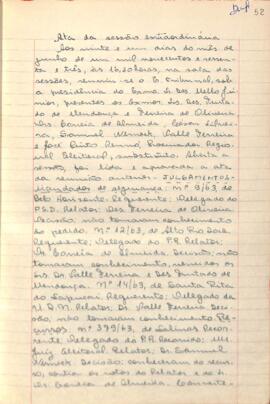 52
Ata da sessão extraordinária
Aos vinte e um dias do mês de
junho de um mil novecentos e sessen-
ta e três, às 16,20 horas, na sala das
sessões, reuniu-se o E. Tribunal, sob
a presidência do Exmo. Sr. Des. Mello
presentes os Exmos. Srs. Des. Furta-
do de Mendonça e Ferreira de Oliveira
Drs. Corrêa de Almeida,
Samuel Werneck, Valle Ferreira
e José Pinto Renno, Procurador Regio-
nal Eleitoral, substituto. Aberta a
sessão, foi lida e aprovada a ata
da reunião anterior. - JULGAMENTOS -
Mandados de segurança: nº 9/63, de
Belo Horizonte. Requerente: Delegado do
P.S.D. Relator: Des. Ferreira de Oliveira.
Decisão: não tomaram conhecimento
do pedido. Nº 12/63, de Alto Rio Doce.
Requerente: Delegado do P.R. Relator:
Dr. Corrêa de Almeida. Decisão: não
tomaram conhecimento, vencidos os
srs. Dr. Valle Ferreira e Des. Furtado de
Mendonça. Nº 14/63, de Santa Rita
do Sapucaí. Requerente: Delegado da
U.D.N. Relator: Dr. Valle Ferreira. De-
cisão: não tomaram conhecimento. Re-
cursos: nº 399/63, de Salinas. Recor-
rente: Delegado do P.R. Recorrido: MM.
Juiz Eleitoral. Relator: Dr. Samuel
Werneck. Decisão: conheceram do recur-
so, contra os votos do Relator e do Sr.
Dr. Corrêa de Almeida.